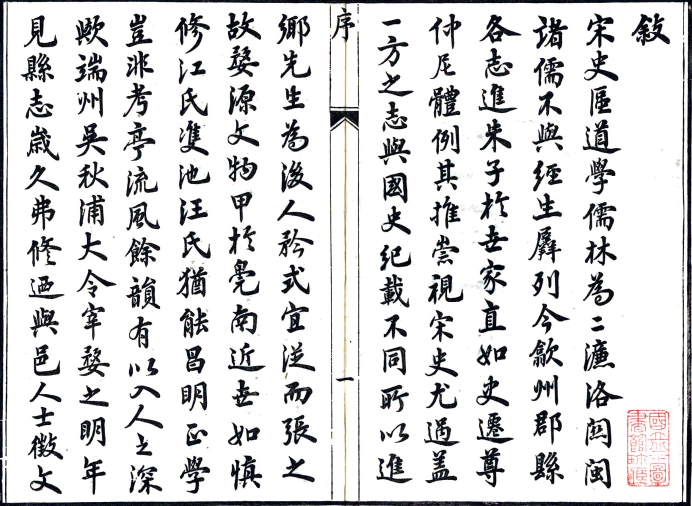 敍
宋史區道學儒林為二濂洛関閩
諸儒不與經生羼列今歙州郡縣
各志進朱子於世家直如史遷尊
仲尼體例其推崇視宋史尤過盖
一方之志與國史紀載不同所以進
序
一
鄉先生為後人矜式宜從而張之
故婺源文物甲於皖南近世如慎
修江氏雙池汪氏猶能昌明正學
豈非考亭流風餘韻有以入人之深
歟端州吳秋浦大令宰婺之明年
見縣志歲久弗修迺與邑人士徵文